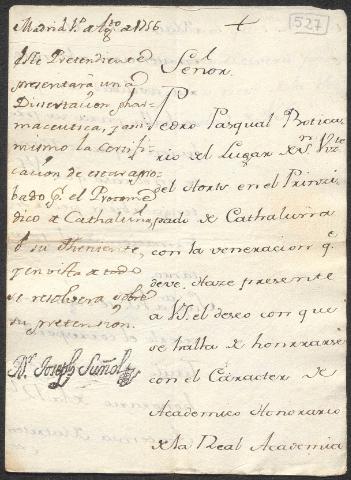 Madrid 1º. de Agto. de 1756
+
527
Este Pretendiente
presentará una
Dissertacion phar-
maceutica, y asi
mismo la Certifi-
cacion de estar apro-
bado pr. el Protome-
dico de Cathaluña,
ò su Theniente,
y en vista de todo
se resolverá sobre
su pretension.
Dr. Joseph Suñol
Señor.
Pedro Pasqual Botica-
rio del Lugar de Sn. Vte.
del Horts en el Princi-
pado de Cathaluña
con la veneracion q.
deve, Haze presente
a VS. el deseo con que
se halla de honrrarse
con el Caracter de
Academico Honorario
de la Real Academia